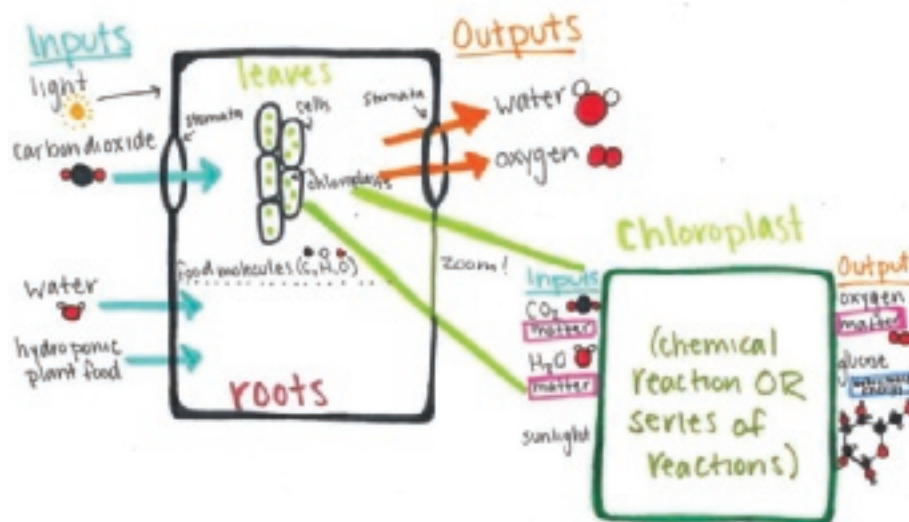 Inputs
light
carbon dioxide
water
hydroponic
plant food
stomata
leaves
cells
chloroplasts
food molecules (C, H, O)
roots
Outputs
stomata
water
oxygen
zoom!
Chloroplast
Inputs
CO₂
matter
H₂O
matter
sunlight
(chemical
reaction OR
series of
reactions)
Output
oxygen
matter
glucose